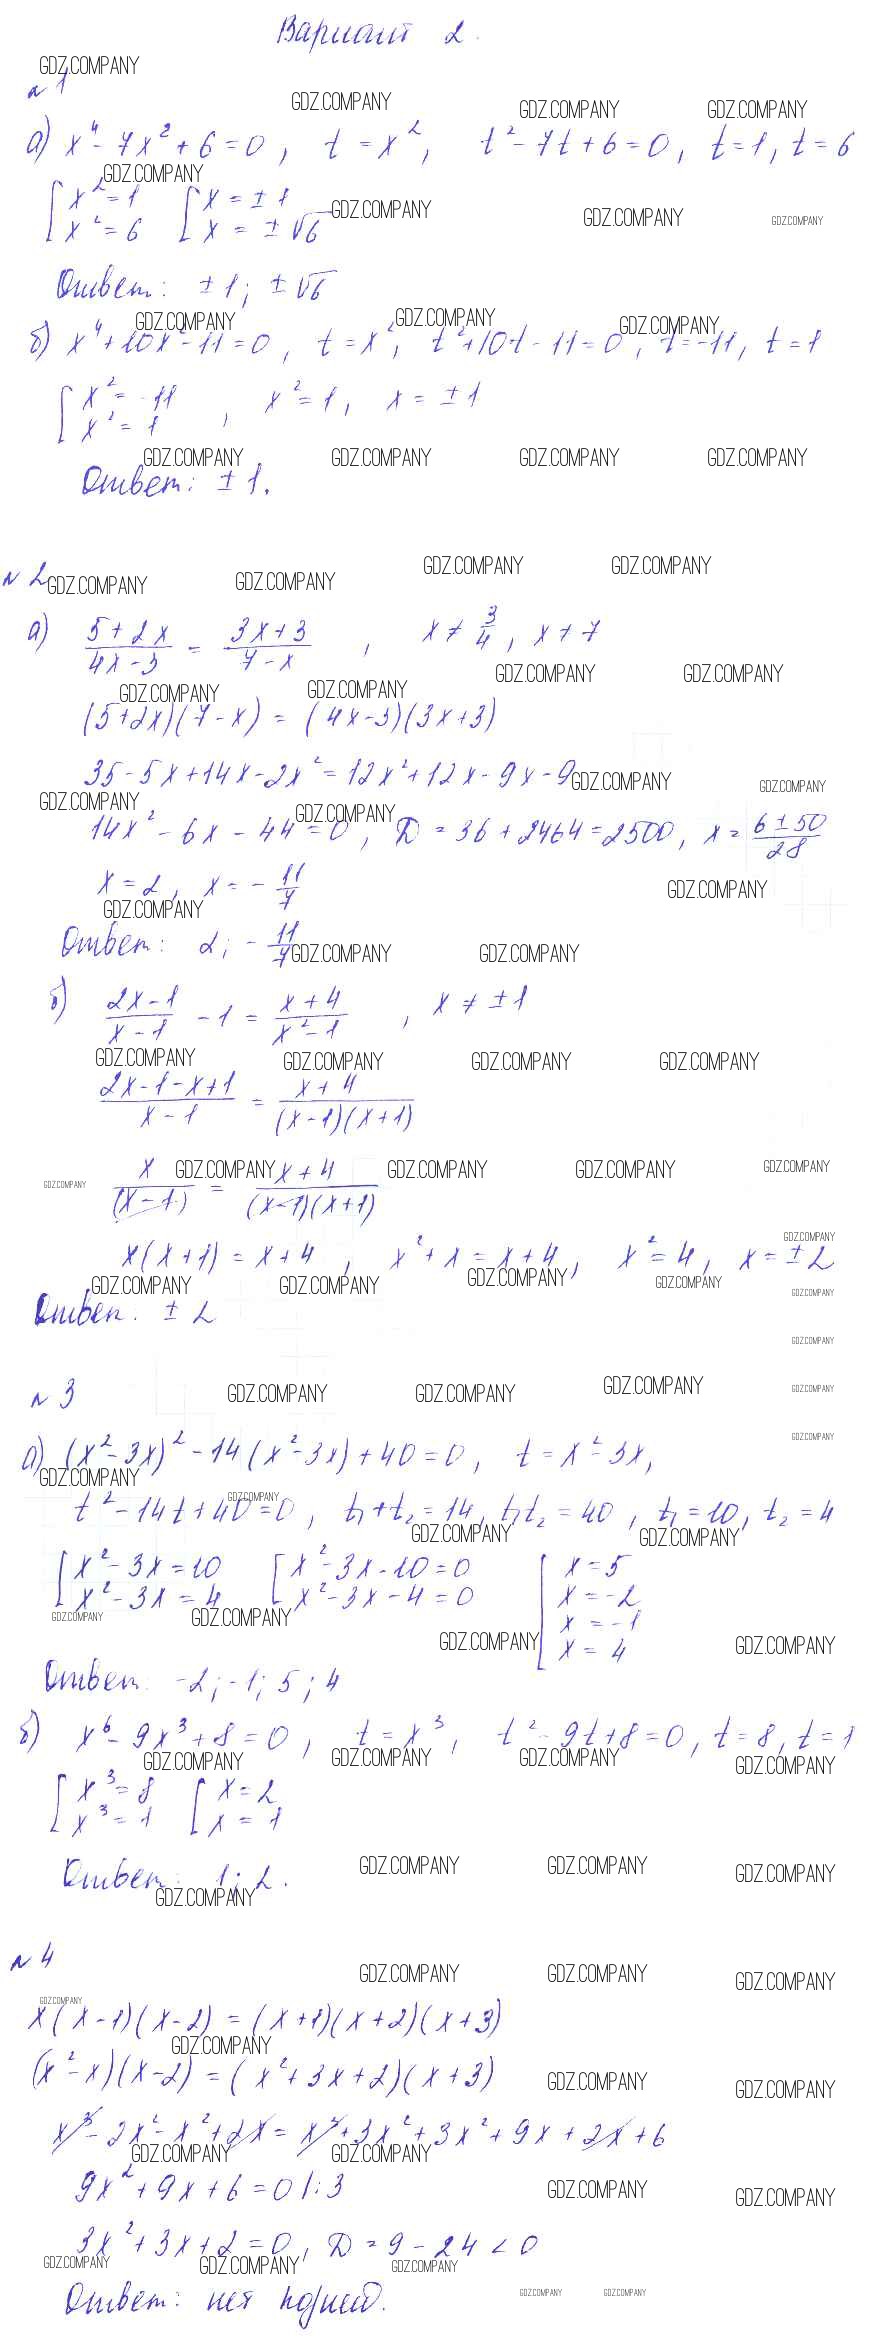 Вариант 2.
GDZ.COMPANY
№1
GDZ.COMPANY GDZ.COMPANY GDZ.COMPANY
а) x⁴ - 7x² + 6 = 0, t = x², t² - 7t + 6 = 0, t = 1, t = 6
GDZ.COMPANY
[ x² = 1 [ x = ± 1
GDZ.COMPANY GDZ.COMPANY GDZ.COMPANY
[ x² = 6 [ x = ± √6
Ответ: ± 1; ± √6
GDZ.COMPANY GDZ.COMPANY GDZ.COMPANY
б) x⁴ + 10x² - 11 = 0, t = x², t² + 10t - 11 = 0, t = -11, t = 1
[ x² = -11
[ x² = 1 , x² = 1, x = ± 1
GDZ.COMPANY GDZ.COMPANY GDZ.COMPANY GDZ.COMPANY
Ответ: ± 1.
GDZ.COMPANY GDZ.COMPANY
№2 GDZ.COMPANY GDZ.COMPANY
а) (5 + 2x)/(4x - 3) = (3x + 3)/(7 - x) , x ≠ 3/4, x ≠ 7
GDZ.COMPANY GDZ.COMPANY
GDZ.COMPANY GDZ.COMPANY
(5 + 2x)(7 - x) = (4x - 3)(3x + 3)
35 - 5x + 14x - 2x² = 12x² + 12x - 9x - 9
GDZ.COMPANY GDZ.COMPANY
GDZ.COMPANY GDZ.COMPANY
14x² - 6x - 44 = 0, D = 36 + 2464 = 2500, x = (6 ± 50)/28
x = 2, x = - 11/7
GDZ.COMPANY
GDZ.COMPANY
Ответ: 2; - 11/7
GDZ.COMPANY GDZ.COMPANY
б) (2x - 1)/(x - 1) - 1 = (x + 4)/(x² - 1) , x ≠ ± 1
GDZ.COMPANY GDZ.COMPANY GDZ.COMPANY GDZ.COMPANY
(2x - 1 - x + 1)/(x - 1) = (x + 4)/((x - 1)(x + 1))
GDZ.COMPANY GDZ.COMPANY GDZ.COMPANY GDZ.COMPANY GDZ.COMPANY
x/(x - 1) = (x + 4)/((x - 1)(x + 1))
GDZ.COMPANY
x(x + 1) = x + 4, x² + x = x + 4, x² = 4, x = ± 2
GDZ.COMPANY GDZ.COMPANY GDZ.COMPANY GDZ.COMPANY
GDZ.COMPANY
Ответ: ± 2
GDZ.COMPANY
№3 GDZ.COMPANY GDZ.COMPANY GDZ.COMPANY GDZ.COMPANY
GDZ.COMPANY
а) (x² - 3x)² - 14(x² - 3x) + 40 = 0, t = x² - 3x,
GDZ.COMPANY
GDZ.COMPANY
t² - 14t + 40 = 0, t₁ + t₂ = 14, t₁t₂ = 40, t₁ = 10, t₂ = 4
GDZ.COMPANY GDZ.COMPANY
[ x² - 3x = 10 [ x² - 3x - 10 = 0 [ x = 5
[ x² - 3x = 4 [ x² - 3x - 4 = 0 x = -2
GDZ.COMPANY GDZ.COMPANY
x = -1
GDZ.COMPANY GDZ.COMPANY
x = 4
Ответ: -2; -1; 5; 4
б) x⁶ - 9x³ + 8 = 0, t = x³, t² - 9t + 8 = 0, t = 8, t = 1
GDZ.COMPANY GDZ.COMPANY GDZ.COMPANY GDZ.COMPANY
[ x³ = 8 [ x = 2
[ x³ = 1 [ x = 1
GDZ.COMPANY GDZ.COMPANY GDZ.COMPANY
Ответ: 1; 2.
GDZ.COMPANY
№4
GDZ.COMPANY GDZ.COMPANY GDZ.COMPANY
GDZ.COMPANY
x(x - 1)(x - 2) = (x + 1)(x + 2)(x + 3)
GDZ.COMPANY
(x² - x)(x - 2) = (x² + 3x + 2)(x + 3)
GDZ.COMPANY GDZ.COMPANY
x³ - 2x² - x² + 2x = x³ + 3x² + 3x² + 9x + 2x + 6
GDZ.COMPANY GDZ.COMPANY
9x² + 9x + 6 = 0 |:3
GDZ.COMPANY GDZ.COMPANY
3x² + 3x + 2 = 0, D = 9 - 24 < 0
GDZ.COMPANY GDZ.COMPANY GDZ.COMPANY
Ответ: нет корней.
GDZ.COMPANY GDZ.COMPANY